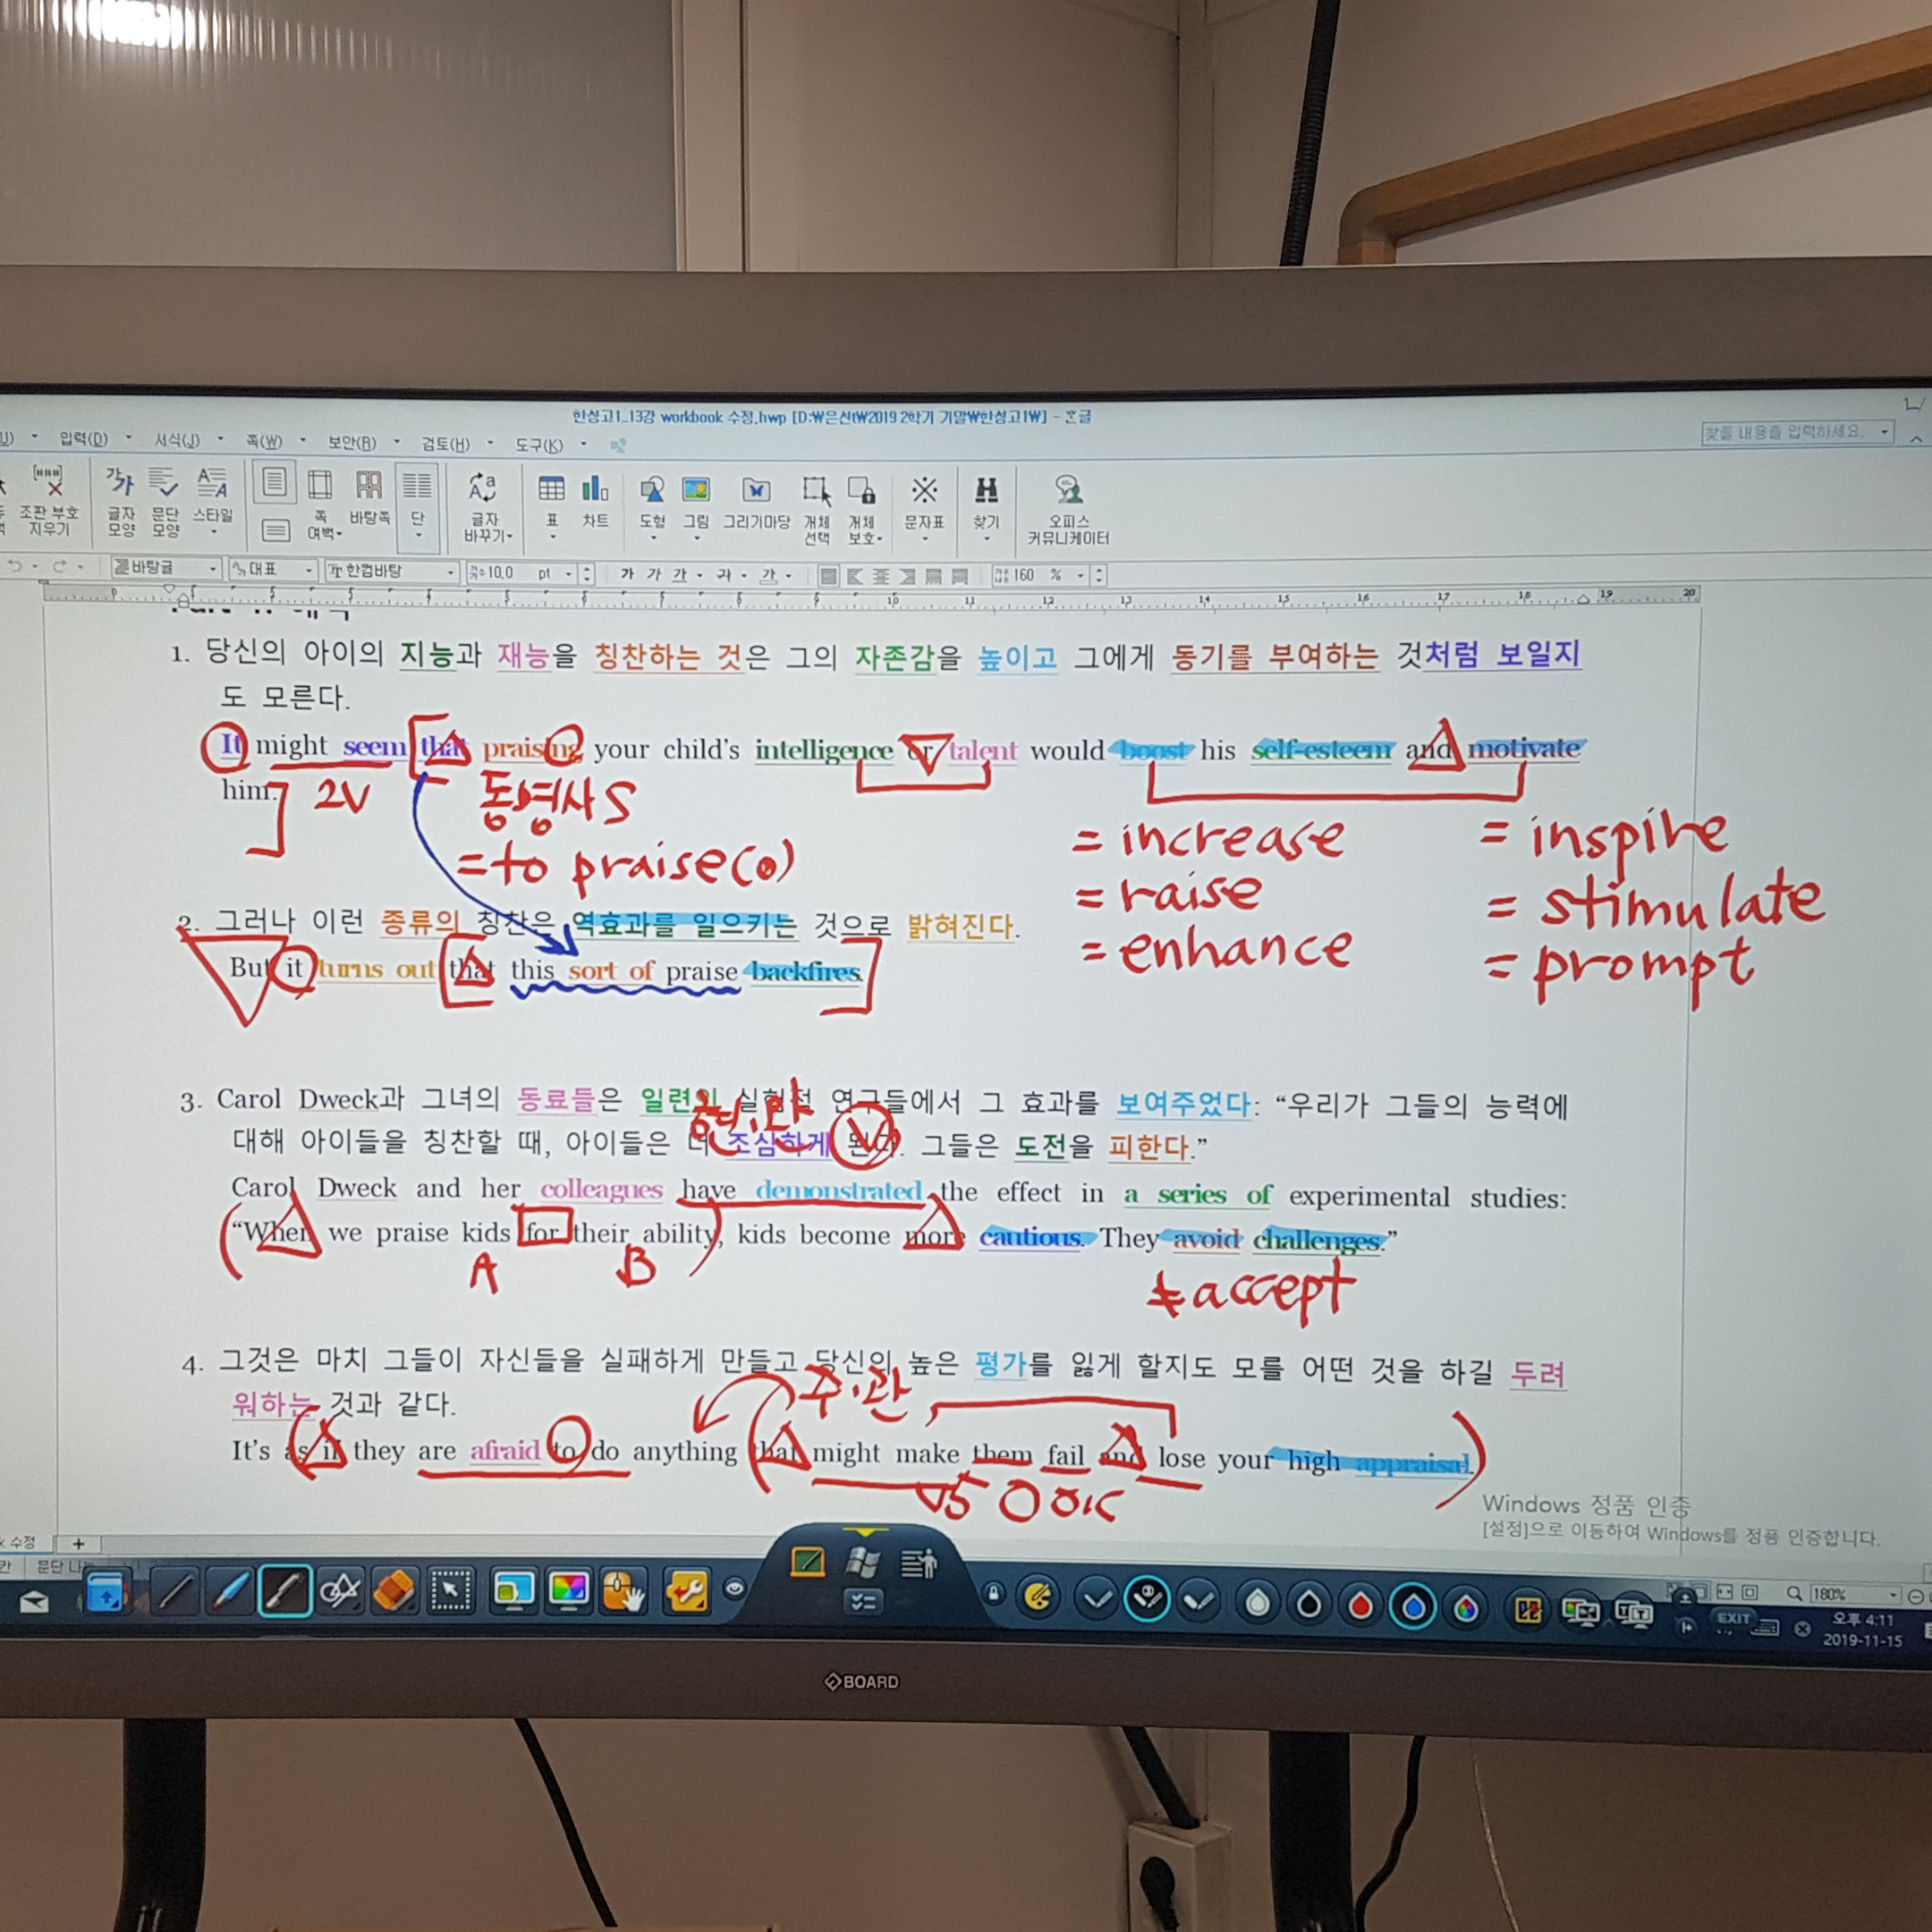 한성고1_13강 workbook 수정.hwp [D:₩은선t₩2019 2학기 기말₩한성고1₩] - 혼글
입력(D) 서식(J) 쪽(W) 보안(B) 검토(H) 도구(K)
찾을 내용을 입력하세요.
조판 부호 지우기 글자 모양 문단 모양 스타일 쪽 여백 바탕쪽 단 글자 바꾸기 표 차트 도형 그림 그리기마당 개체 선택 개체 보호 문자표 찾기 오피스 커뮤니케이터
바탕글 대표 한컴바탕 10.0 pt 가 가 가 가 가 160 %
1. 당신의 아이의 지능과 재능을 칭찬하는 것은 그의 자존감을 높이고 그에게 동기를 부여하는 것처럼 보일지
도 모른다.
It might seem that praising your child's intelligence or talent would boost his self-esteem and motivate
him.
2V 동명사 S
=to praise(o)
= increase = inspire
= raise = stimulate
= enhance = prompt
2. 그러나 이런 종류의 칭찬은 역효과를 일으키는 것으로 밝혀진다.
But it turns out that this sort of praise backfires.
3. Carol Dweck과 그녀의 동료들은 일련의 실험적 연구들에서 그 효과를 보여주었다: “우리가 그들의 능력에
대해 아이들을 칭찬할 때, 아이들은 더 조심하게 된다. 그들은 도전을 피한다.”
Carol Dweck and her colleagues have demonstrated the effect in a series of experimental studies:
“When we praise kids for their ability, kids become more cautious. They avoid challenges.”
A B
≠accept
4. 그것은 마치 그들이 자신들을 실패하게 만들고 당신의 높은 평가를 잃게 할지도 모를 어떤 것을 하길 두려
워하는 것과 같다.
주.관
It's as if they are afraid to do anything that might make them fail and lose your high appraisal.
V5 O OC
Windows 정품 인증
[설정]으로 이동하여 Windows를 정품 인증합니다.
수정
문단 나
180%
EXIT
오후 4:11
2019-11-15
BOARD